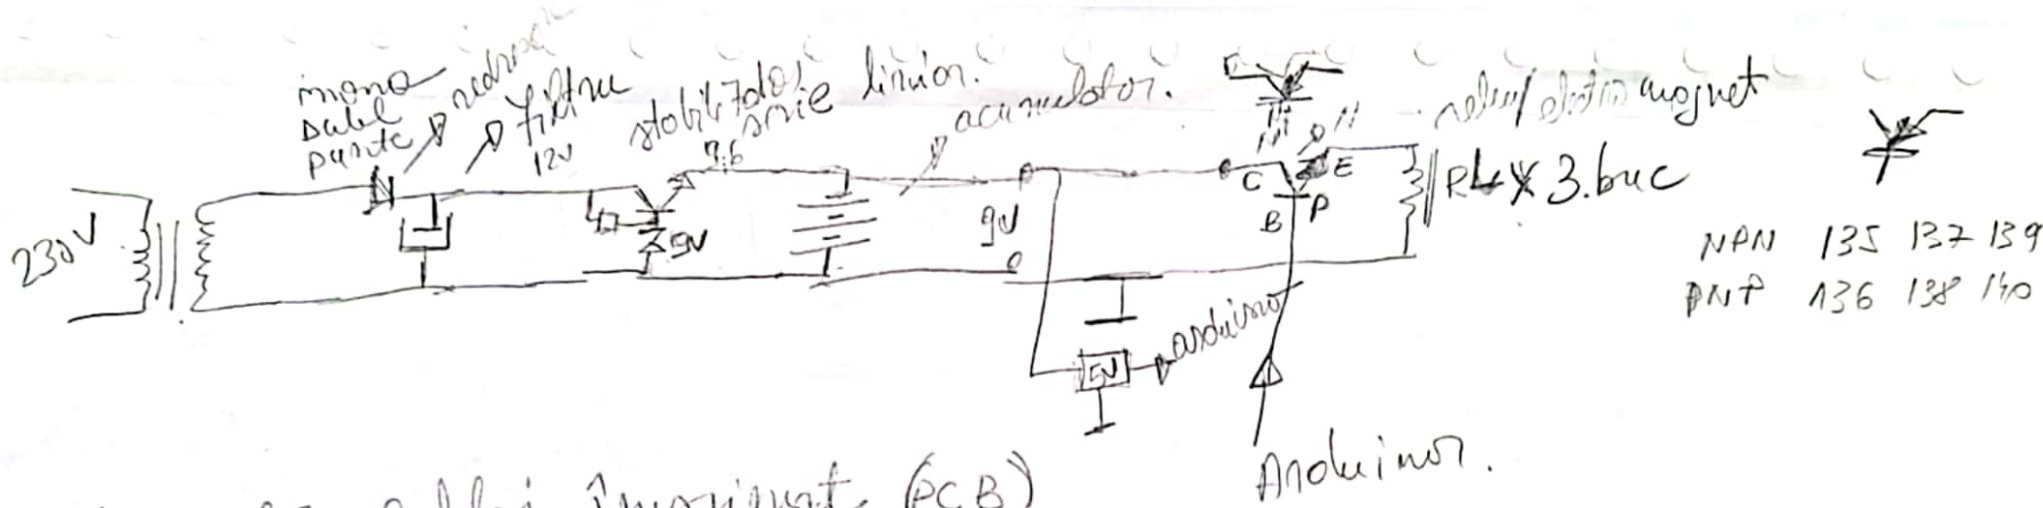 mono
sau
punte
redresor
filtru
12V
stabilizator
serie liniar.
acumulator.
230V
9V
9V
C
E
B
P
releu/electromagnet
RL x 3.buc
NPN 135 137 139
PNP 136 138 140
5V
arduino
Arduino.
(PCB)